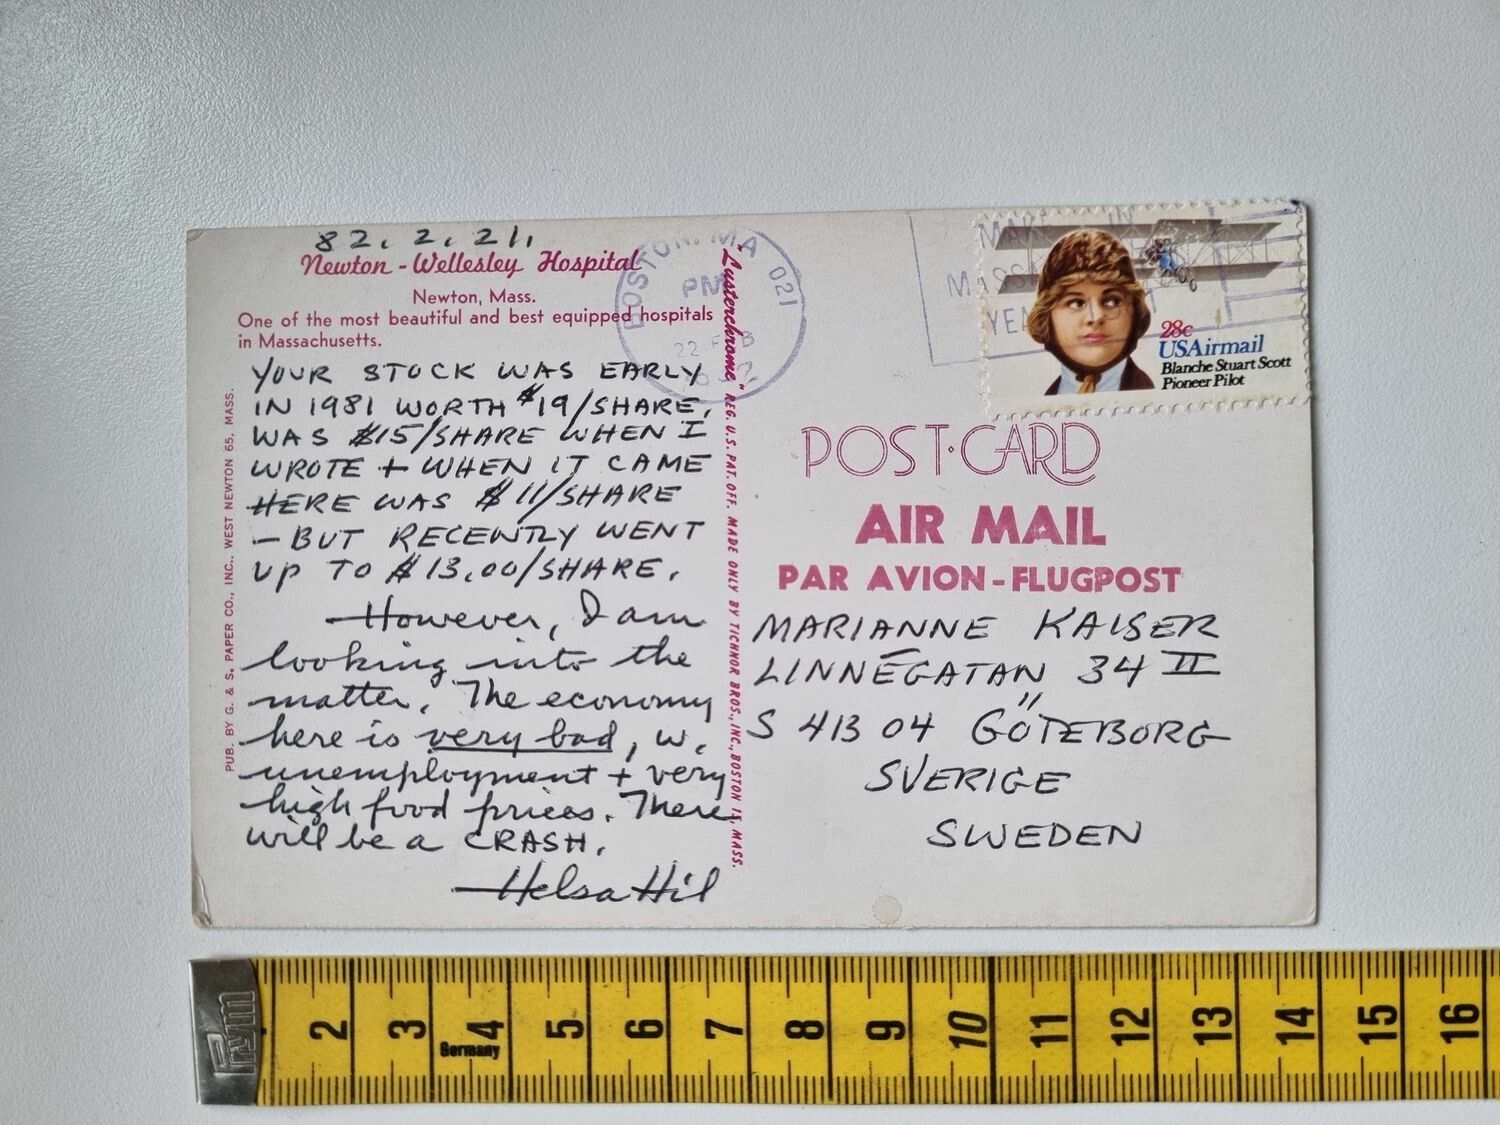 82. 2. 21.
Newton - Wellesley Hospital
Newton, Mass.
One of the most beautiful and best equipped hospitals
in Massachusetts.
YOUR STOCK WAS EARLY
IN 1981 WORTH $19/SHARE,
WAS $15/SHARE WHEN I
WROTE + WHEN IT CAME
HERE WAS $11/SHARE
- BUT RECENTLY WENT
UP TO $13.00/SHARE.
However, I am
looking into the
matter. The economy
here is very bad, w.
unemployment + very
high food prices. There
will be a CRASH.
Helsa Hil
PUB. BY G. & S. PAPER CO., INC., WEST NEWTON 65, MASS.
"Lusterchrome" REG. U.S. PAT. OFF. MADE ONLY BY TICHNOR BROS., INC., BOSTON 15, MASS.
BOSTON, MA 021
PM
22 FEB
MAKE IN
28c
USAirmail
Blanche Stuart Scott
Pioneer Pilot
POST·CARD
AIR MAIL
PAR AVION - FLUGPOST
MARIANNE KAISER
LINNÉGATAN 34 II
S 413 04 GÖTEBORG
SVERIGE
SWEDEN
Prym
2 3 4 5 6 7 8 9 10 11 12 13 14 15 16
Germany